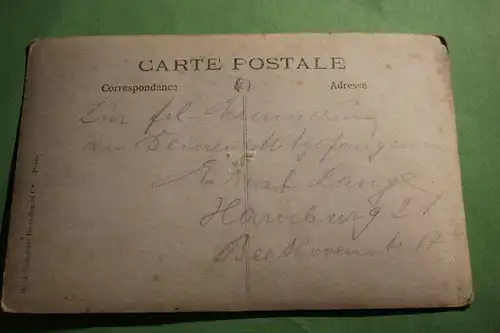 CARTE POSTALE
Correspondance Adresse
Zur frl. Erinnerung
an Deinen Mitgefangenen
Ernst Lange
Hamburg 21
Beethovenstr 17